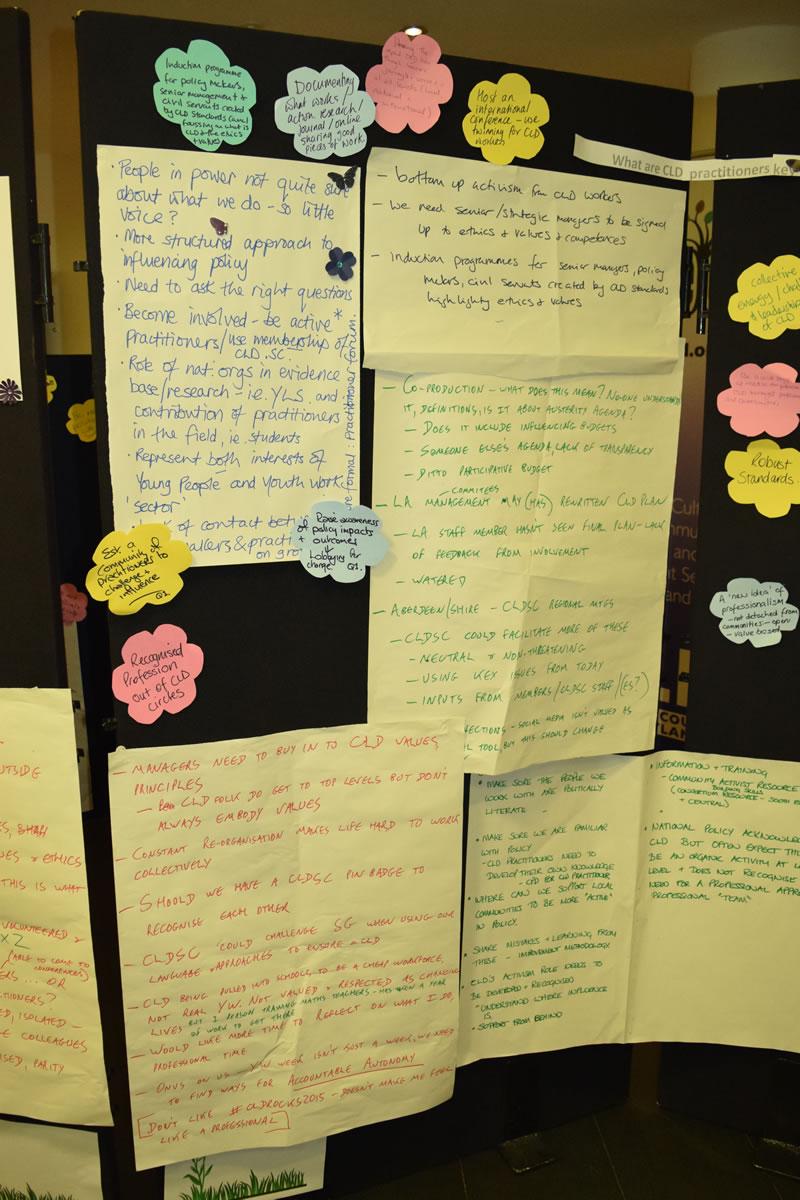 Induction programme
for policy makers,
senior management &
civil servants created
by CLD Standards Council
focussing on what is
CLD & the ethics
& values
Documenting
what works /
action research /
journal / online
sharing good
pieces of work
Host an
international
conference - use
twinning for CLD
workers
What are CLD practitioners key
· People in power not quite sure
about what we do - so little
voice?
· More structured approach to
influencing policy
· Need to ask the right questions
· Become involved - be active *
Practitioners/use membership of
CLD.SC.
· Role of nat. orgs in evidence
base/research - ie. YLS. and
contribution of practitioners
in the field, ie. students
· Represent both interests of
Young People and Youth work
'sector'
of contact bet
& practi
on gro
formal: Practitioner forum.
- bottom up activism from CLD workers
- We need senior/strategic managers to be signed
up to ethics & values & competences
- Induction programmes for senior managers, policy
makers, civil servants created by CLD standards
highlighty ethics & values
- Co-production - what does this mean? No-one understands
it, definitions, is it about austerity agenda?
- Does it include influencing budgets
- Someone else's agenda, lack of transparency
- Ditto participative budget
committees
- LA management may (has) rewritten CLD plan
- LA staff member hasn't seen final plan - lack
of feedback from involvement
- Watered
- Aberdeen/shire - CLDSC regional mtgs
- CLDSC could facilitate more of these
- Neutral & non-threatening
- Using key issues from today
- Inputs from members/CLDSC staff/(es?)
- social media isn't valued as
tool, but this should change
Est. a
community of
practitioners to
challenge &
influence
Q2
Raise awareness
of policy impacts
+ outcomes
+
Lobbying for
change. Q1.
Recognised
Profession
out of CLD
circles
- Managers need to buy in to CLD values,
principles
- CLD folk do get to top levels but don't
always embody values
- Constant re-organisation makes life hard to work
collectively
- Should we have a CLDSC pin badge to
recognise each other
- CLDSC could challenge SG when using our
language & approaches to ensure CLD
- CLD being pulled into schools, to be a cheap workforce,
not real YW. Not valued & respected as changing
lives but 1 person training maths teachers - has been a year
of work to get there
- Would like more time to reflect on what I do,
professional time
- Onus on us - YW week isn't just a week, we need
to find ways for Accountable Autonomy
[Don't like #CLDROCKS2015 - doesn't make me feel
like a professional]
· Make sure the people we
work with are politically
literate -
· Make sure we are familiar
with policy
- CLD practitioners need to
develop their own knowledge
- CPD for CLD practitioner
· Where can we support local
communities to be more "active"
in policy.
· Share mistakes + learning from
these - improvement methodology
· CLD's activism role needs to
be developed + recognised
· Understand where influence
is.
· Support from behind
· Information + training
- Community activist resource
building skills
(consortium resource -
+ central)
· National policy acknowle
CLD but often expect th
be an organic activity at l
level + does not recognise
need for a professional appr
professional "team"
collective
energy/
& leadership
of CLD
Robust
Standards.
A 'new idea' of
professionalism
- not detached from
communities - open
- value based
utside
es & ethics
this is what
volunteered &
x 2
(able to come to
conferences)
ers ... or
tioners?
ed, isolated -
e colleagues
ised, parity